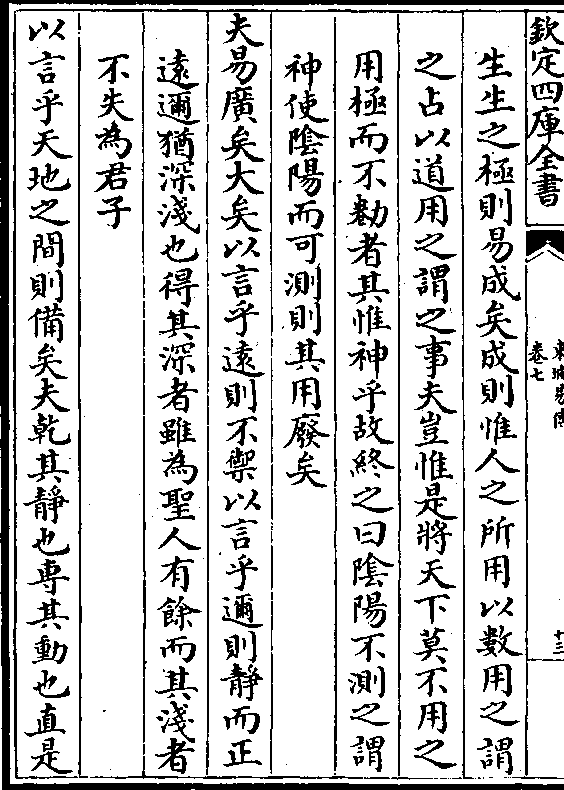 欽定四庫全書
東坡易傳
卷七
十三
生生之極則易成矣成則惟人之所用以數用之謂
之占以道用之謂之事夫豈惟是將天下莫不用之
用極而不勌者其惟神乎故終之曰隂陽不測之謂
神使隂陽而可測則其用廢矣
夫易廣矣大矣以言乎逺則不禦以言乎邇則靜而正
逺邇猶深淺也得其深者雖為聖人有餘而其淺者
不失為君子
以言乎天地之間則備矣夫乾其靜也専其動也直是